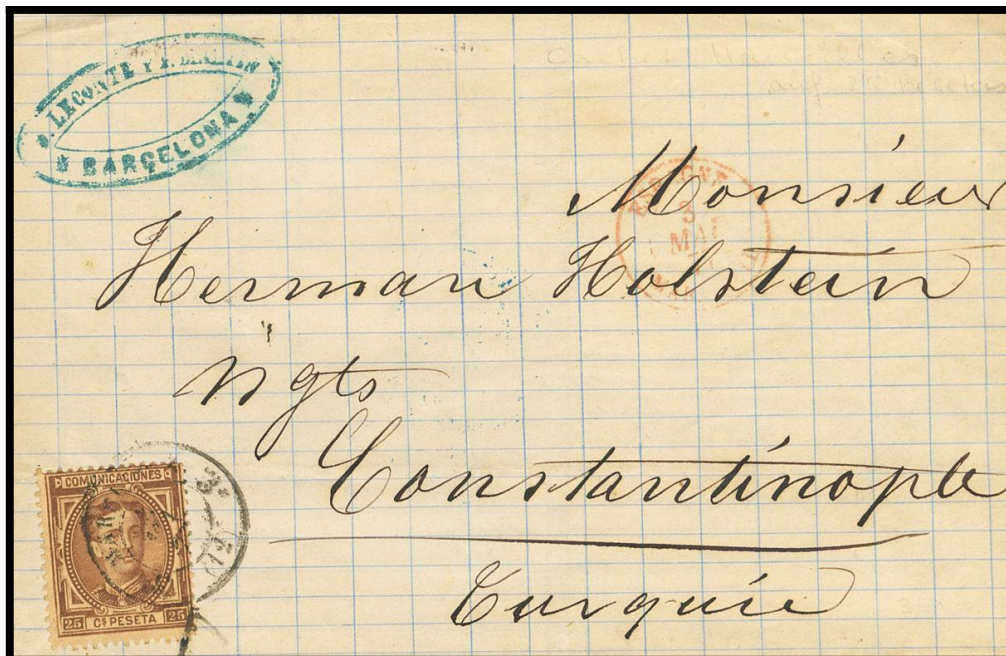 LECONTE Y
BARCELONA
ESPAGNE
3
MAI
Monsieur
Herman Holstein
Ngts
Constantinople
Turquie
COMUNICACIONES
25 CS PESETA 25
3ª